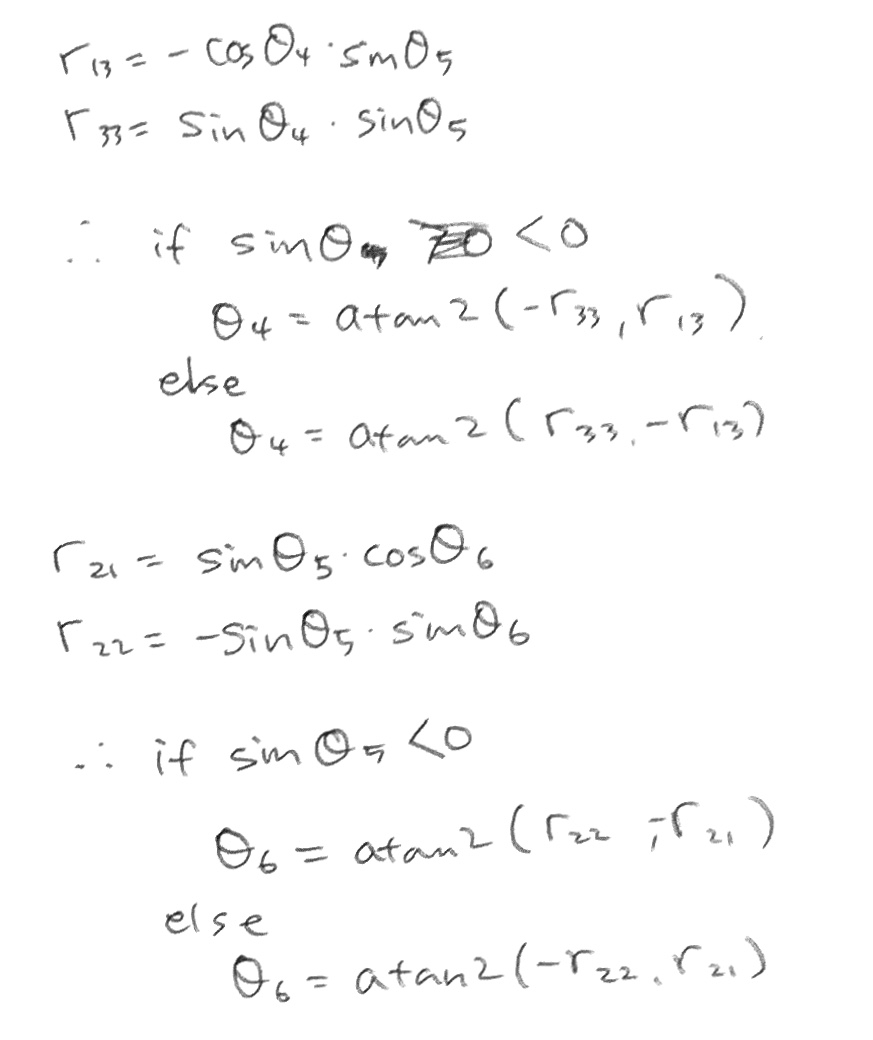 r₁₃ = - cosθ₄ · sinθ₅
r₃₃ = sinθ₄ · sinθ₅
∴ if sinθ₅ < 0
θ₄ = atan2(-r₃₃, r₁₃)
else
θ₄ = atan2(r₃₃, -r₁₃)
r₂₁ = sinθ₅ · cosθ₆
r₂₂ = -sinθ₅ · sinθ₆
∴ if sinθ₅ < 0
θ₆ = atan2(r₂₂, -r₂₁)
else
θ₆ = atan2(-r₂₂, r₂₁)